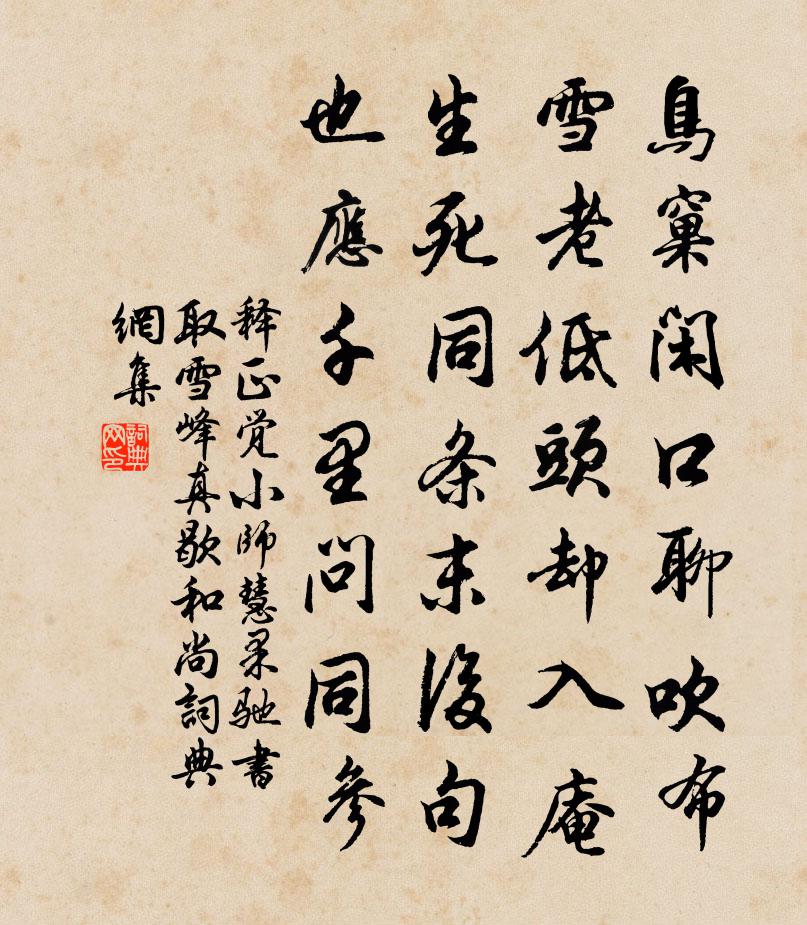 鳥窠閑口聊吹布
雪老低頭却入庵
生死同条末後句
也應千里問同參
释正觉小師慧杲驰書
取雪峰真歇和尚詞典
網集
詞典
网印